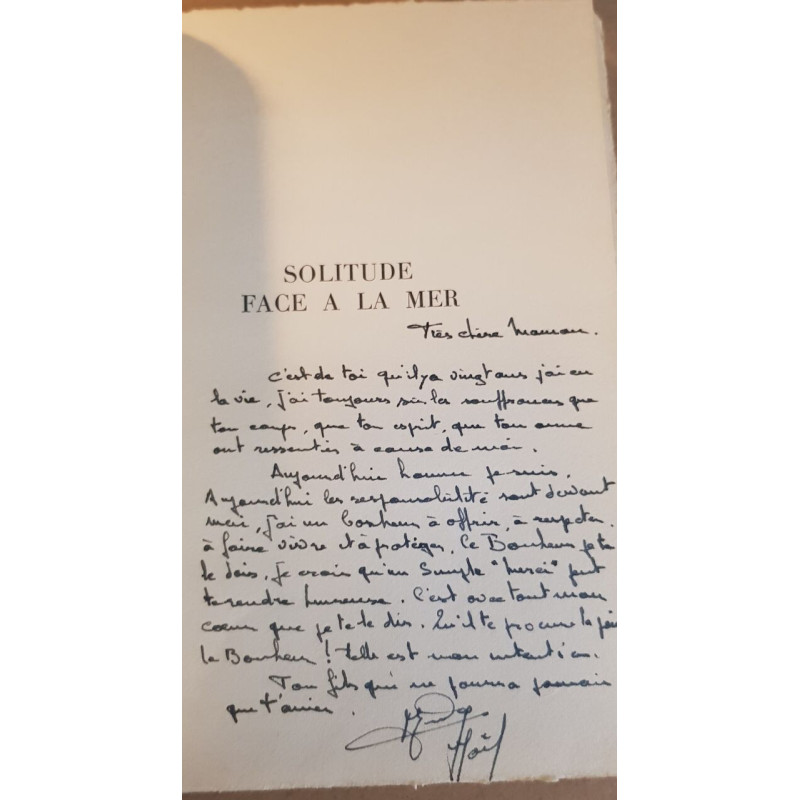 SOLITUDE
FACE A LA MER
Très chère Maman.
C'est de toi qu'il y a vingt ans j'ai eu
la vie, j'ai toujours su les souffrances que
ton corps, que ton esprit, que ton ame
ont ressenties à cause de moi.
Aujourd'hui homme je suis,
Aujourd'hui les responsabilité sont devant
moi, j'ai un bonheur à offrir, à respecter
à faire vivre et à protéger. Ce Bonheur je te
le dois, je crois qu'un Simple "Merci" peut
te rendre heureuse. C'est avec tout mon
coeur que je te le dis. Qu'il te procure la joie
le Bonheur ! Telle est mon intention.
Ton fils qui ne pourra jamais
que t'aimer.